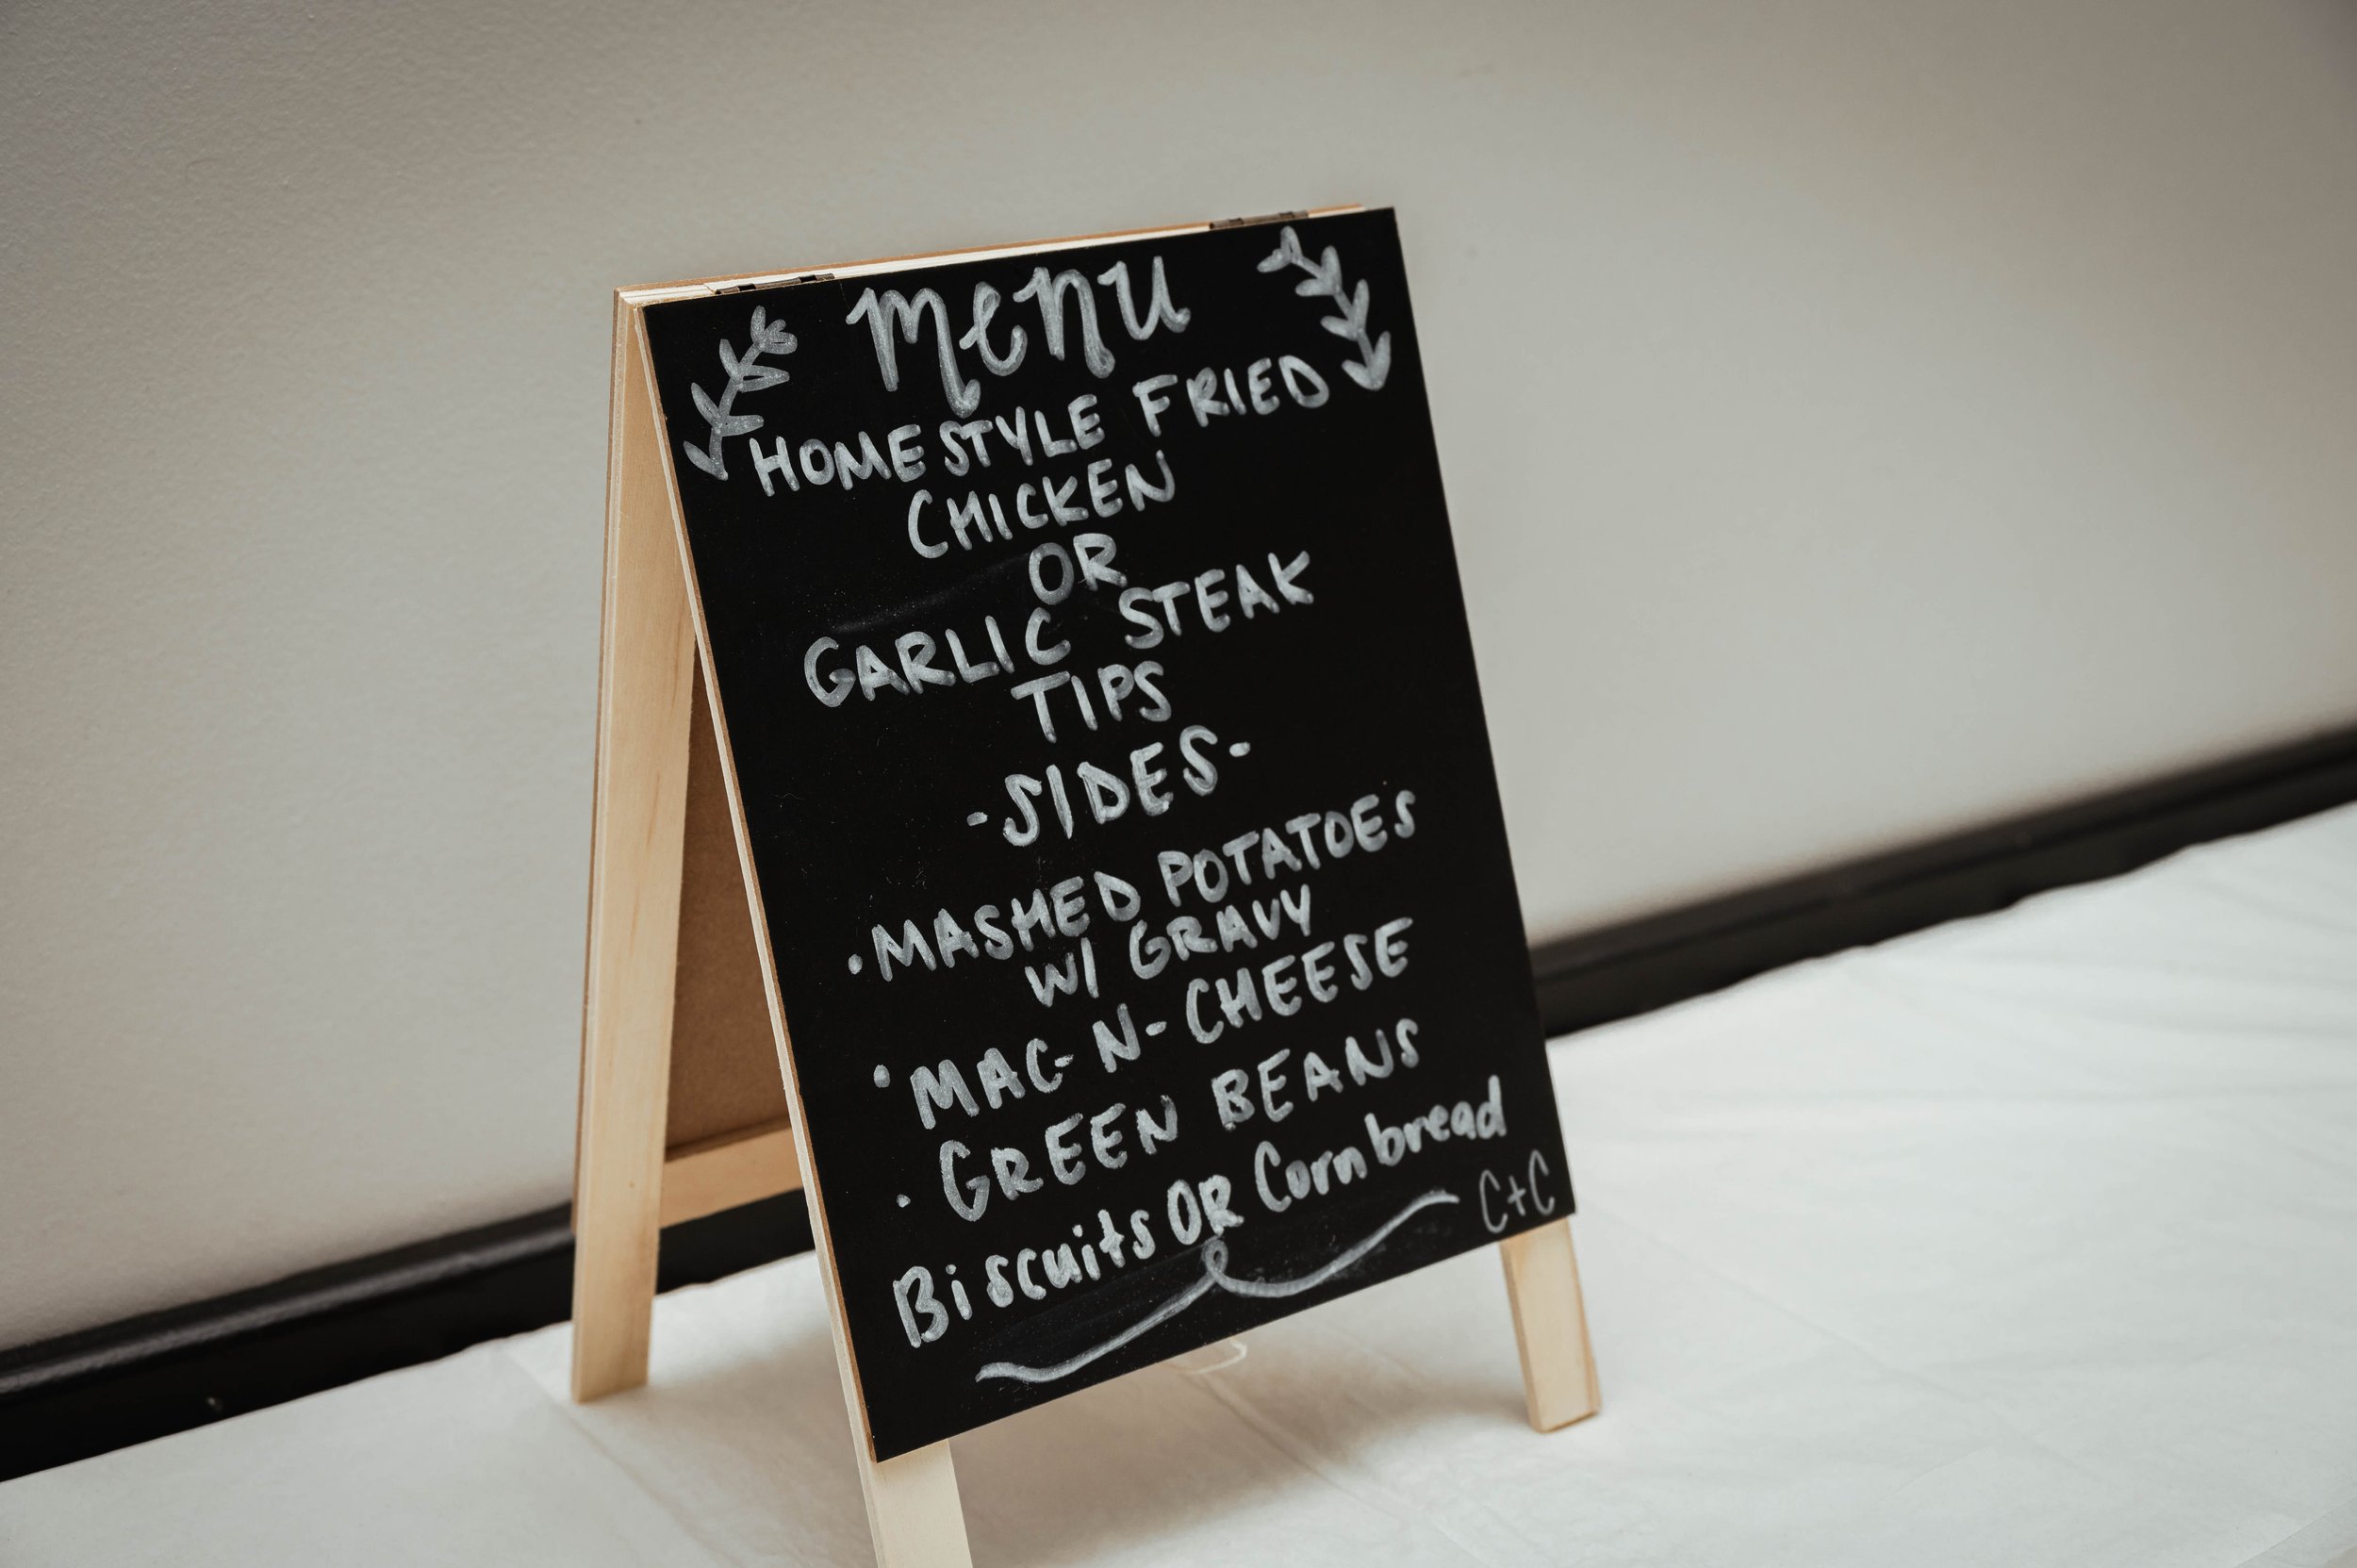 menu
HOMESTYLE FRIED
CHICKEN
OR
GARLIC STEAK
TIPS
-SIDES-
• MASHED POTATOES
W/ GRAVY
• MAC-N-CHEESE
• GREEN BEANS
Biscuits OR Cornbread
C+C